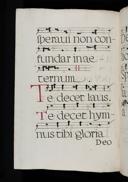 speraui non con
fundar inae
ternum.
Te decet laus.
Te decet hym
nus tibi gloria
Deo